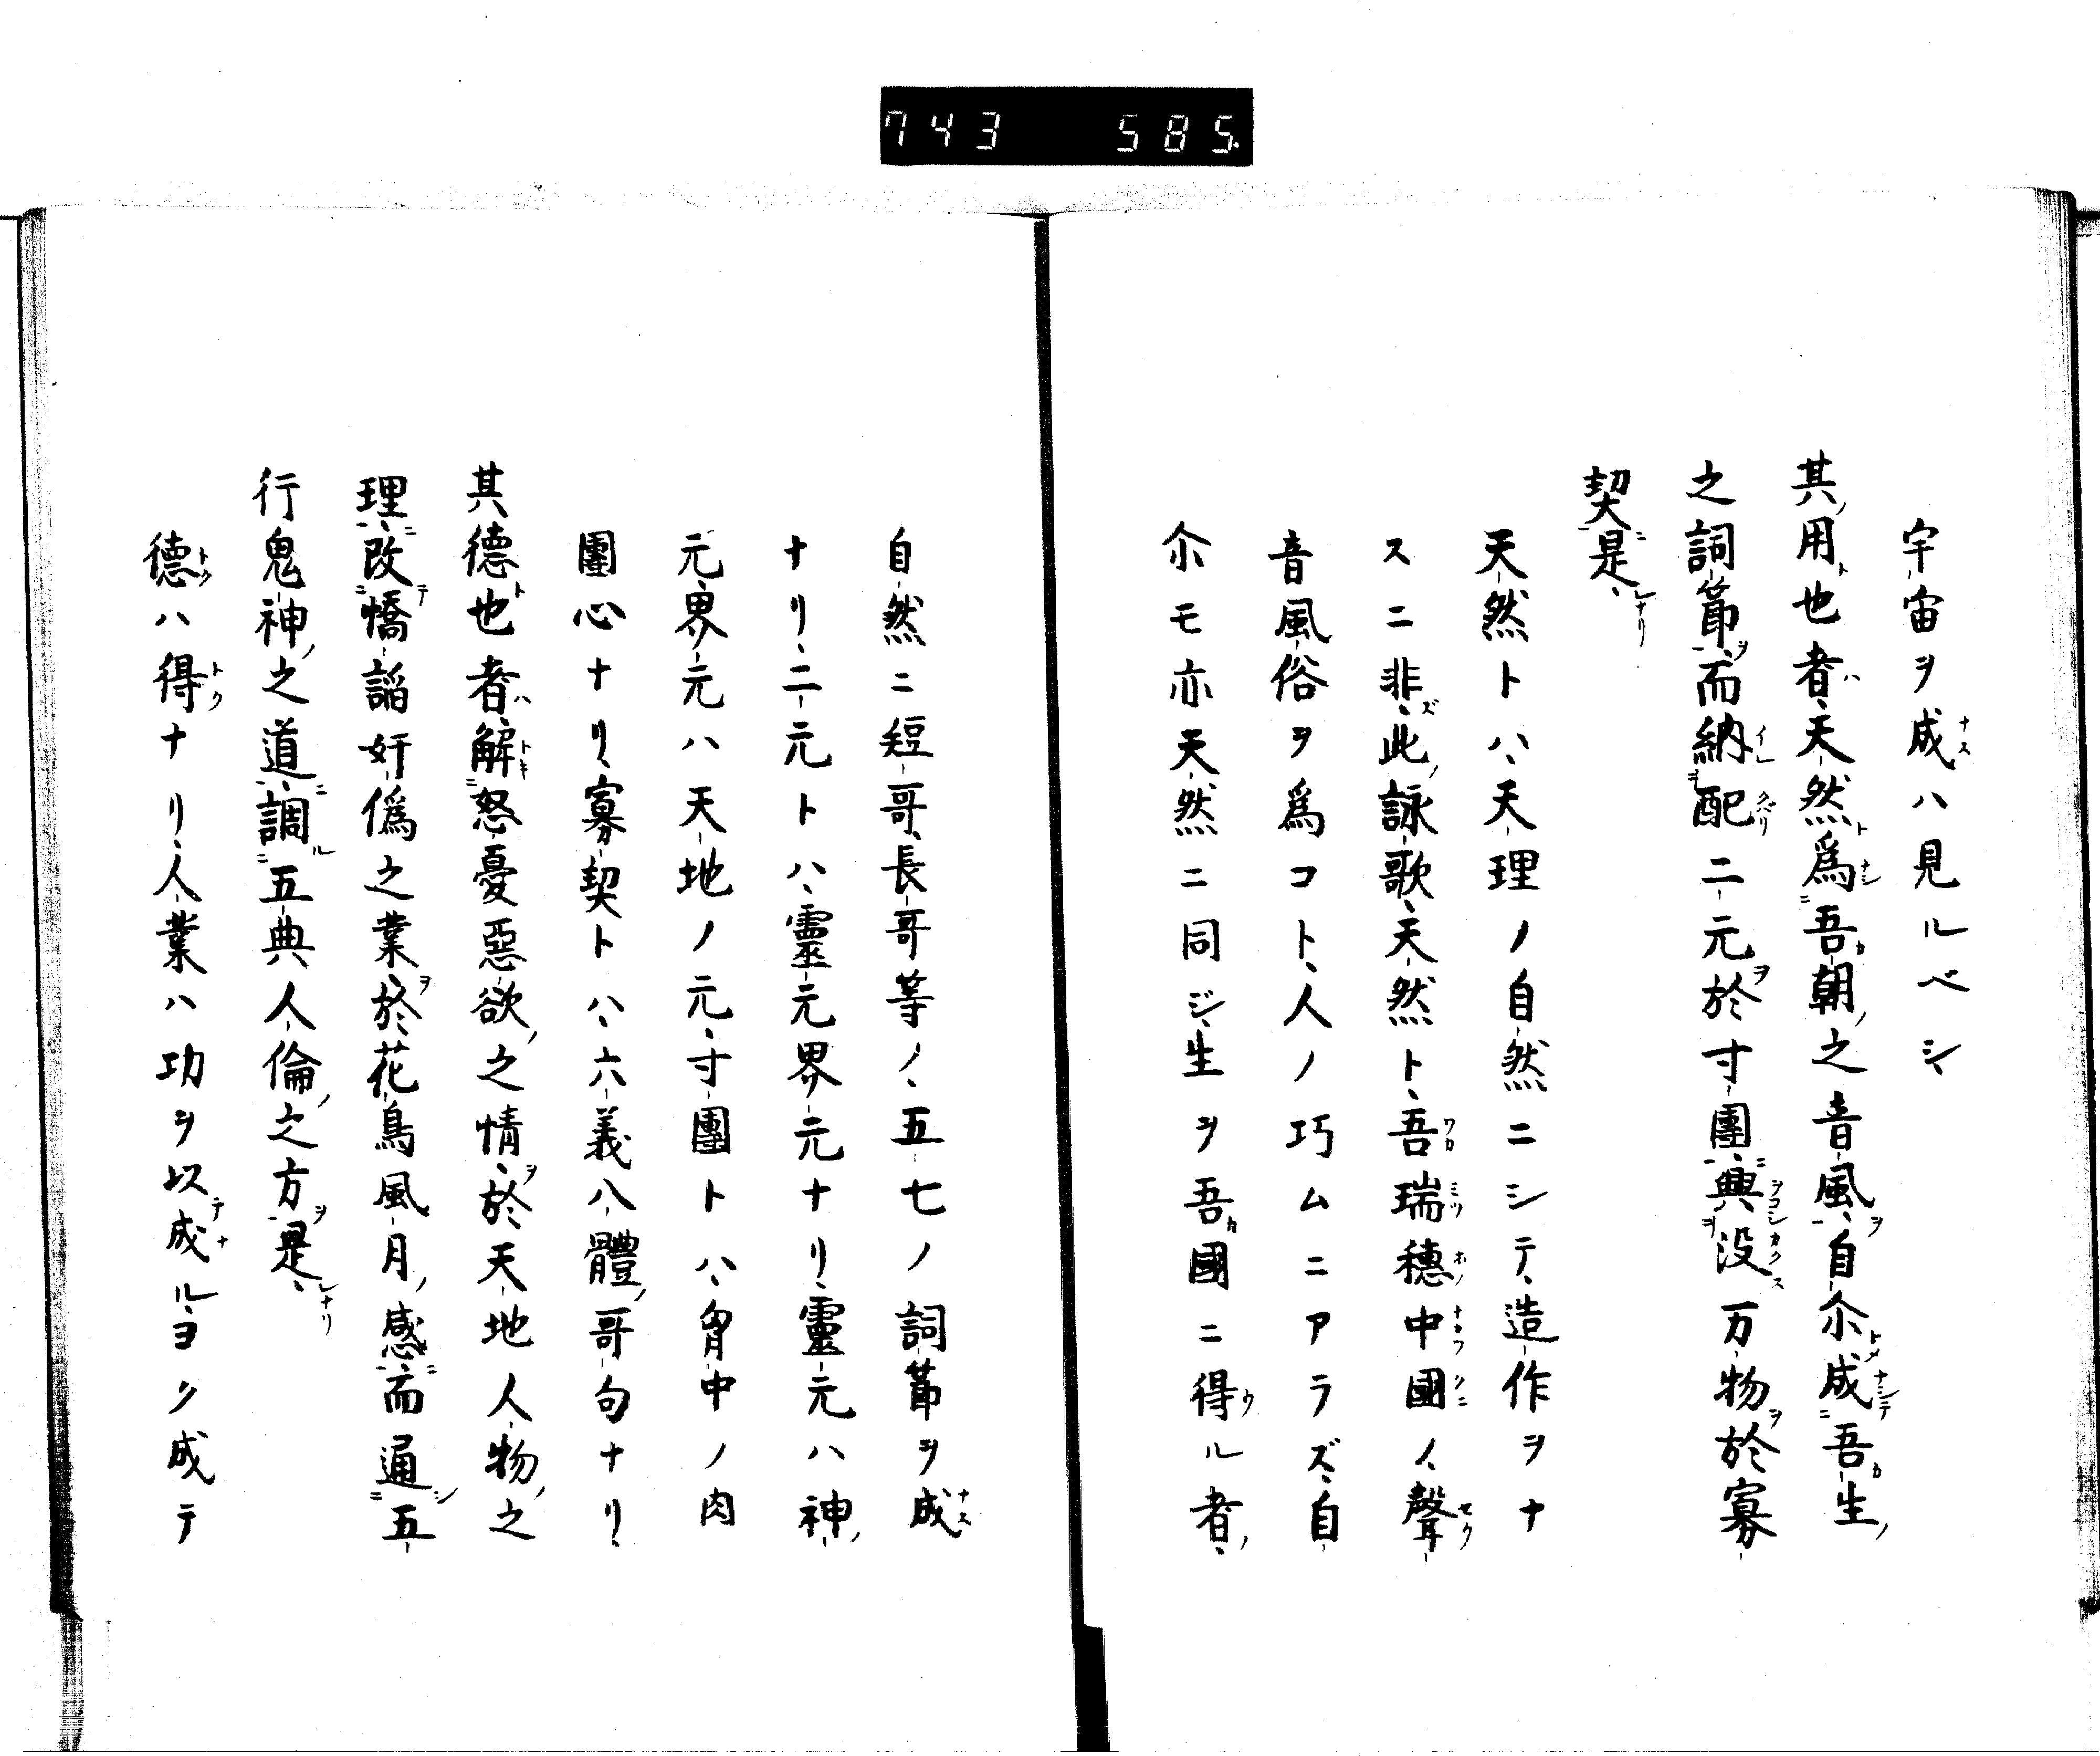 743 585
宇宙ヲ成ハ見ルベシ、
其用也者、天然爲吾朝之音風、自尒成吾生
之詞節、而納配二元於寸團、興没万物於寡
契是、
天然トハ、天理ノ自然ニシテ、造作ヲナ
スニ非、此詠歌、天然ト、吾瑞穗中國ノ、聲
音風俗ヲ爲コト、人ノ巧ムニアラズ、自
尒モ亦天然ニ同ジ、生ヲ吾國ニ得ル者、
自然ニ短哥、長哥等ノ、五七ノ詞節ヲ成
ナリ、二元トハ、靈元界元ナリ、靈元ハ神
元、界元ハ天地ノ元、寸團トハ、胷中ノ肉
團心ナリ、寡契トハ、六義八體哥句ナリ、
其德也者、解怒憂惡欲之情、於天地人物之
理、改憍謟奸僞之業、於花鳥風月、感而通五
行鬼神之道、調五典人倫之方是、
德ハ得ナリ、人業ハ功ヲ以成ル、ヨク成テ